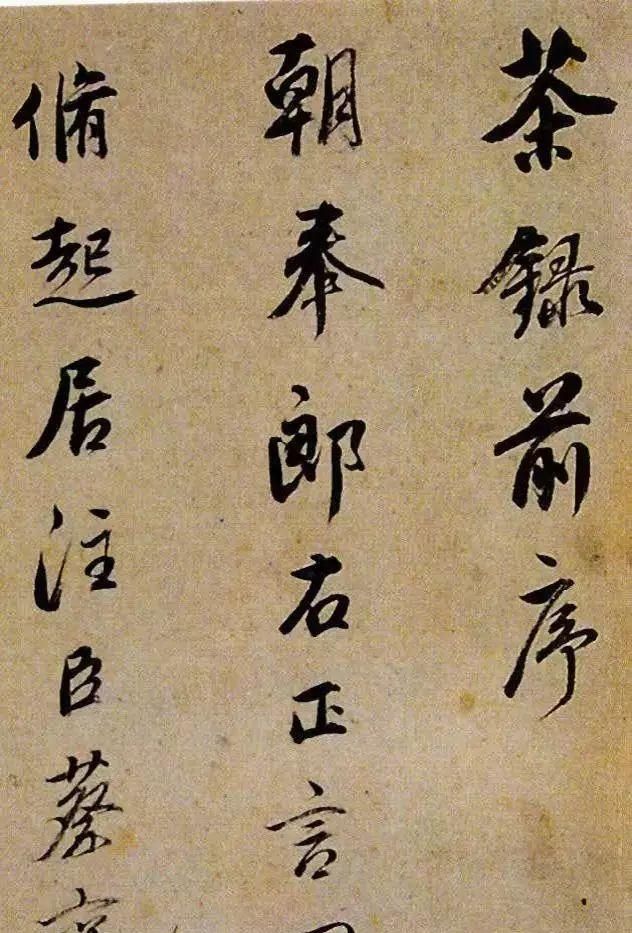 茶録前序
朝奉郎右正言
脩起居注臣蔡